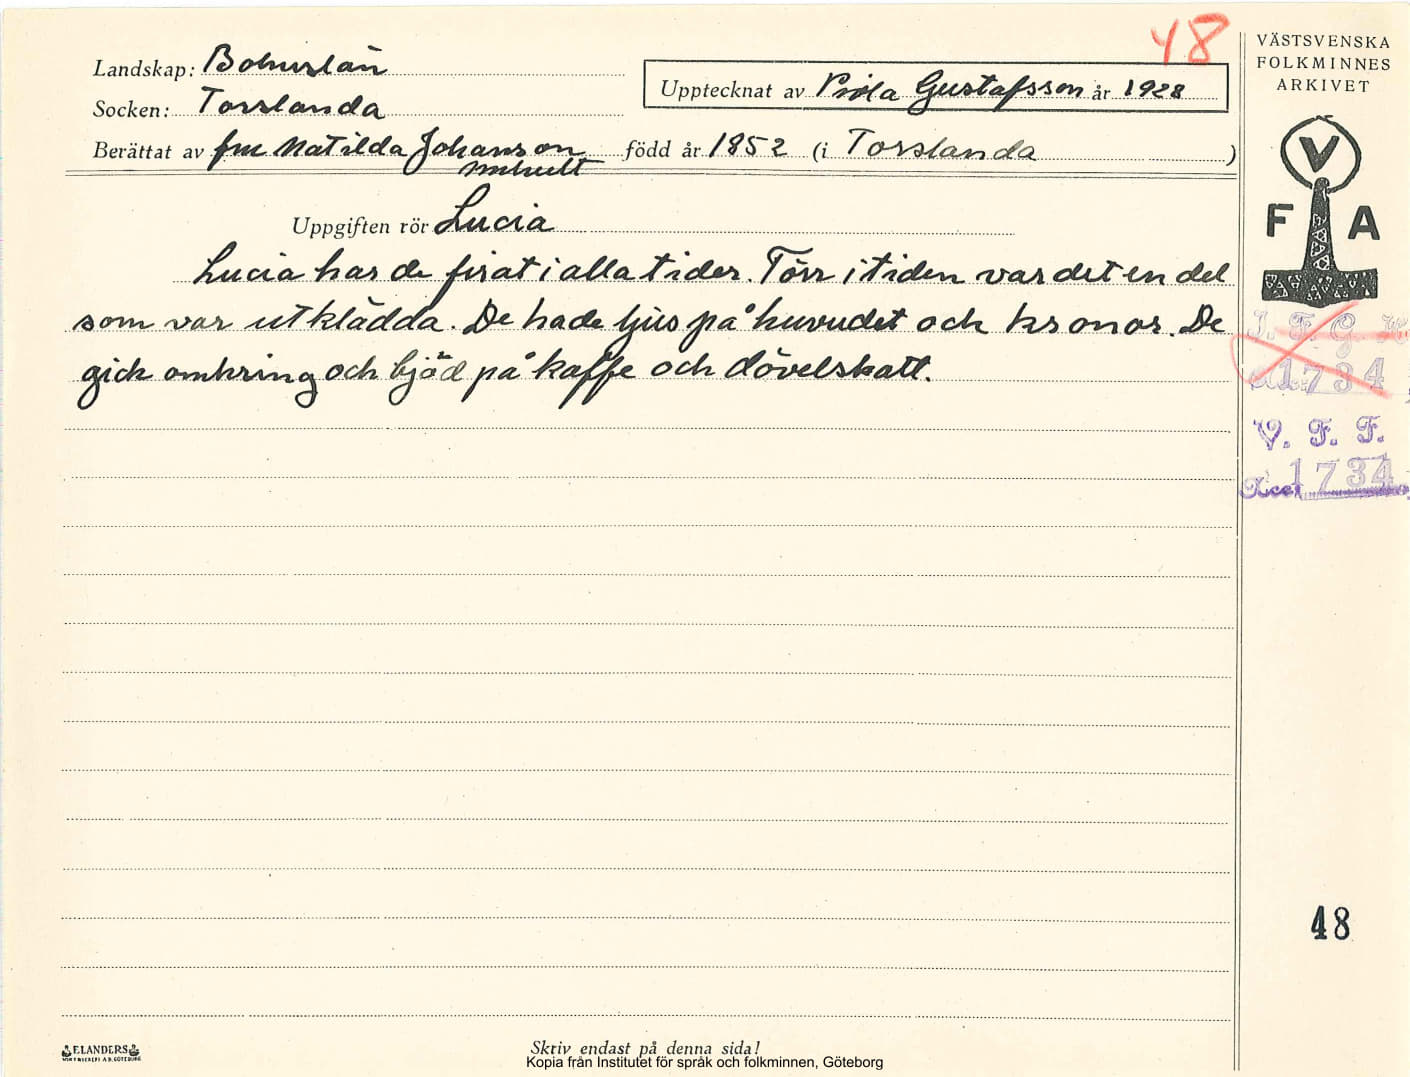 48
VÄSTSVENSKA
FOLKMINNES
ARKIVET
Landskap: Bohuslän
Socken: Torslanda
Upptecknat av Gustafsson år 1928
Berättat av fru Matilda Johansson född år 1852 (i Torslanda )
Uppgiften rör Lucia
Lucia har de firat i alla tider. Förr i tiden var det en del
som var utklädda. De hade ljus på huvudet och kronor. De
gick omkring och bjöd på kaffe och dövelskatt.
V
F A
I. F. G. H.
Acc. 1734
V. F. F.
Acc. 1734
48
ELANDERS
Skriv endast på denna sida!
Kopia från Institutet för språk och folkminnen, Göteborg